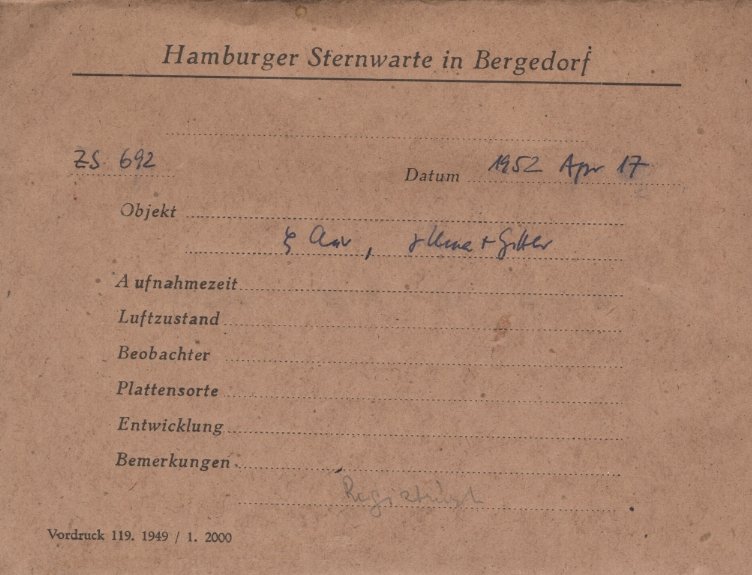 Hamburger Sternwarte in Bergedorf
ZS. 692
Datum 1952 Apr 17
Objekt
ζ Aur,
Aufnahmezeit
Luftzustand
Beobachter
Plattensorte
Entwicklung
Bemerkungen
Registriert
Vordruck 119. 1949 / 1. 2000